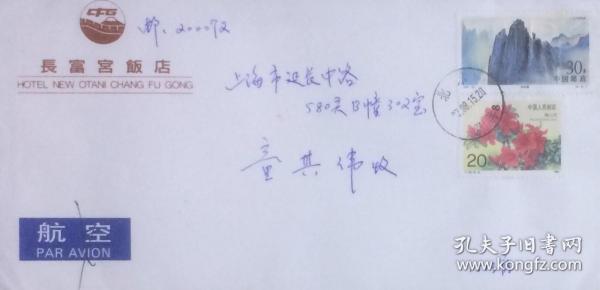 CFG
邮:200072
長富宮飯店
HOTEL NEW OTANI CHANG FU GONG
上海市延长中路
580弄B幢302室
童其伟收
30分
中国邮政
中国人民邮政
20
航空
PAR AVION
孔夫子旧书网
www.kongfz.com